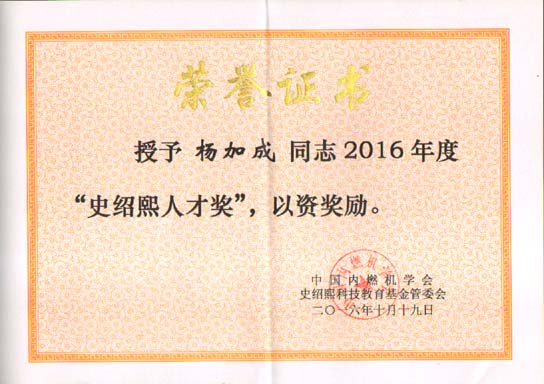 荣誉证书
授予 杨加成 同志2016年度
“史绍熙人才奖”，以资奖励。
中国内燃机学会
史绍熙科技教育基金管委会
二〇一六年十月十九日